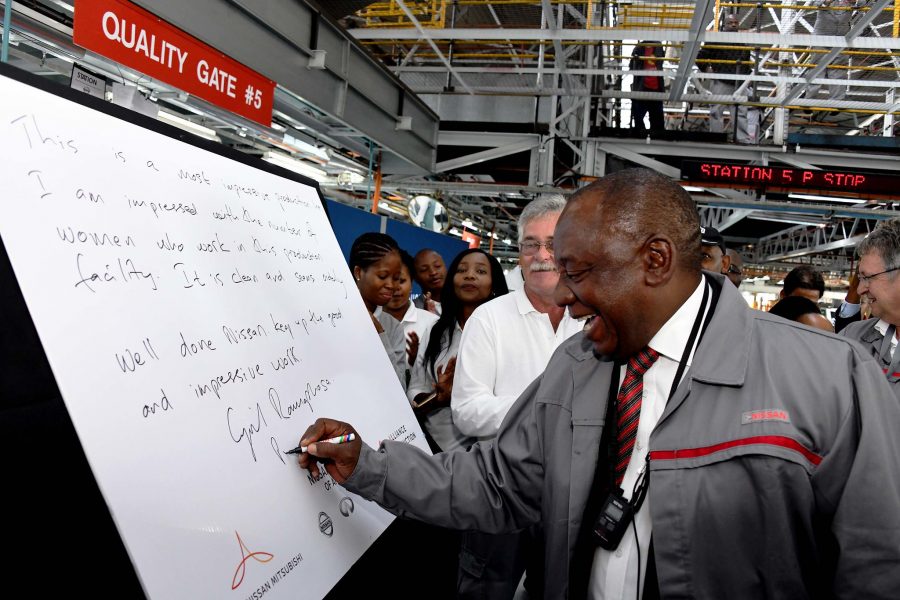 QUALITY GATE #5
STATION
STATION 5 P STOP
This is a most impressive production line
I am impressed with the number of
women who work in this production
facility. It is clean and seems
Well done Nissan keep up the good
and impressive work
Cyril Ramaphosa
ALLIANCE
NISSAN MITSUBISHI
NISSAN